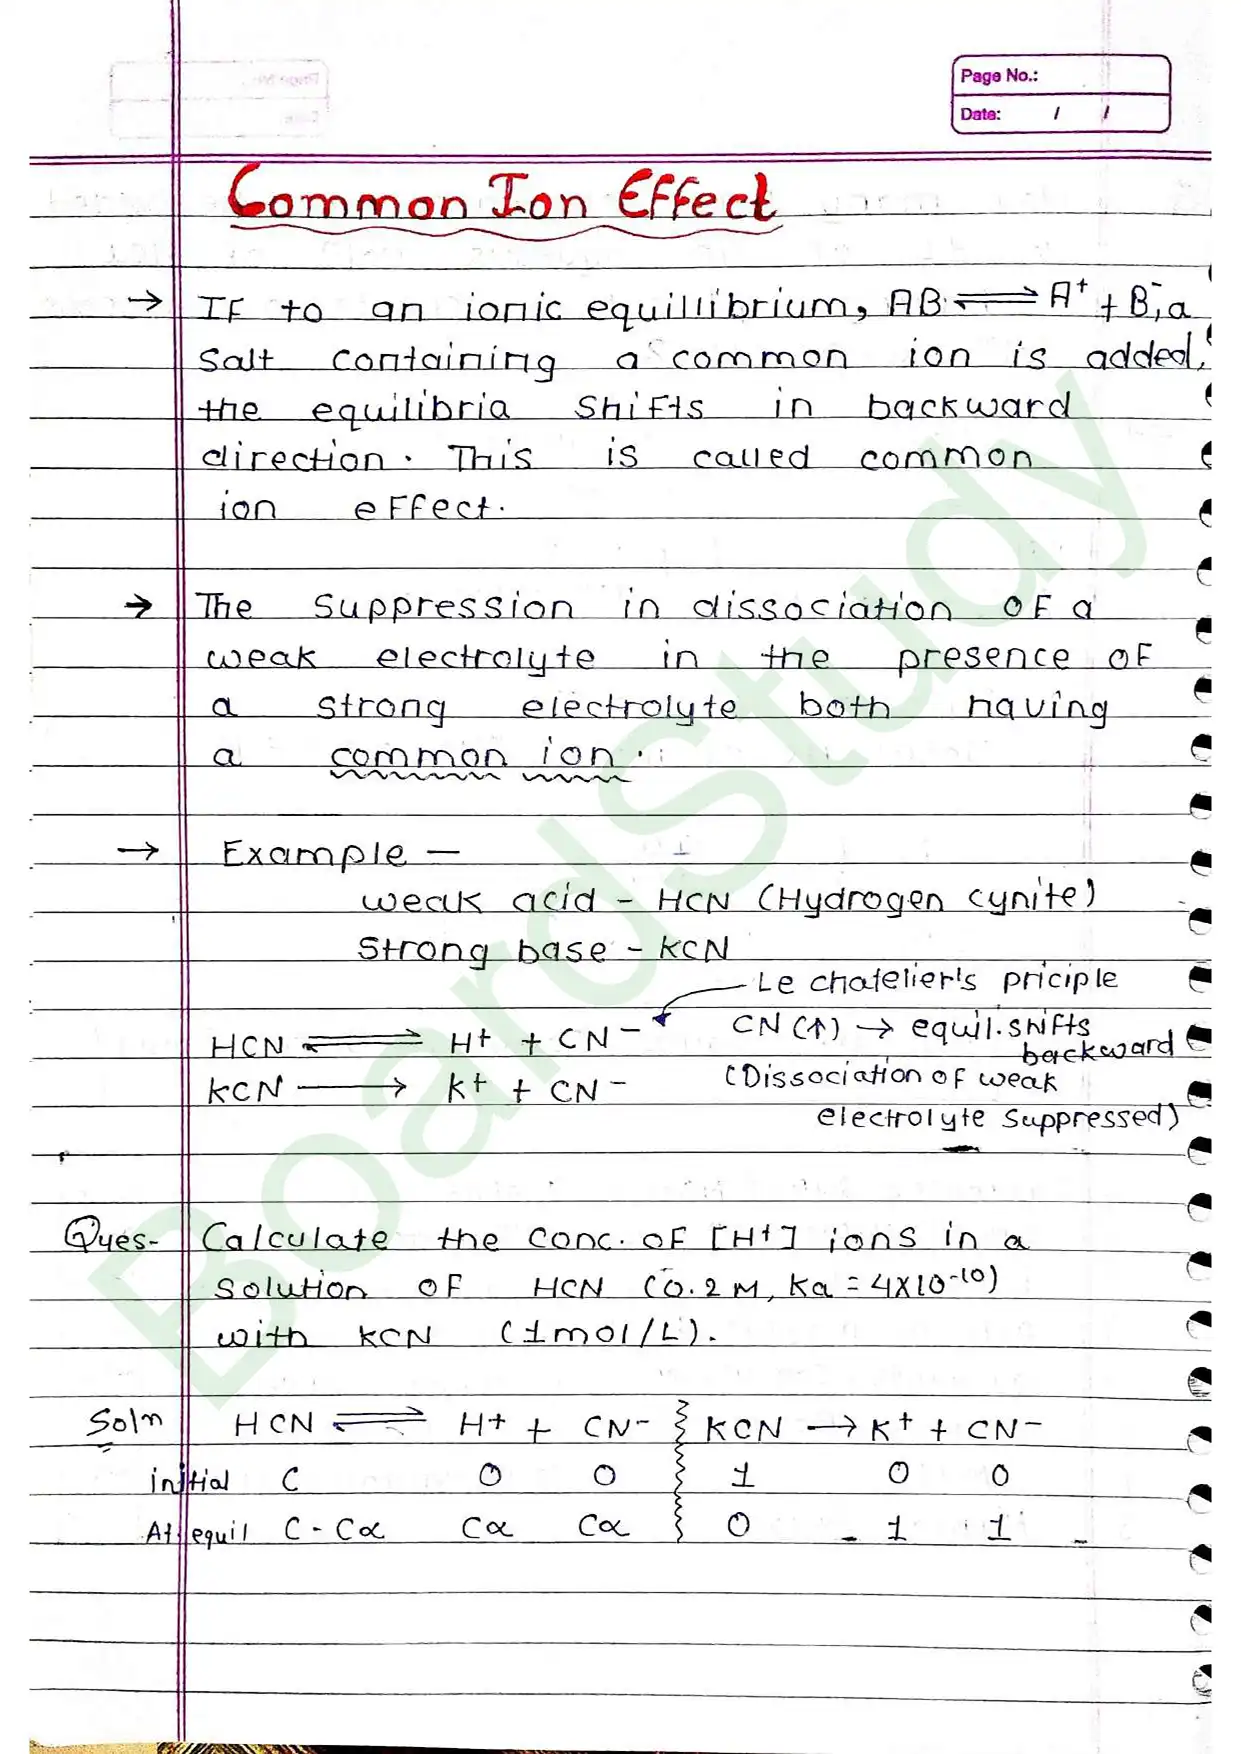 Page No.:
Date: / /
Common Ion Effect
→ If to an ionic equillibrium, AB ⇌ A⁺ + B⁻, a
salt containing a common ion is added,
the equilibria shifts in backward
direction. This is called common
ion effect.
→ The suppression in dissociation of a
weak electrolyte in the presence of
a strong electrolyte both having
a common ion.
→ Example —
weak acid - HCN (Hydrogen cynite)
Strong base - KCN
Le chatelier's priciple
HCN ⇌ H⁺ + CN⁻ CN (↑) → equil. shifts
backward
KCN → K⁺ + CN⁻ (Dissociation of weak
electrolyte suppressed)
Ques- Calculate the conc. of [H⁺] ions in a
solution of HCN (0.2 M, Ka = 4×10⁻¹⁰)
with KCN (1 mol/L).
Soln HCN ⇌ H⁺ + CN⁻ KCN → K⁺ + CN⁻
initial C 0 0 1 0 0
At equil C - Cα Cα Cα 0 1 1
BoardStudy